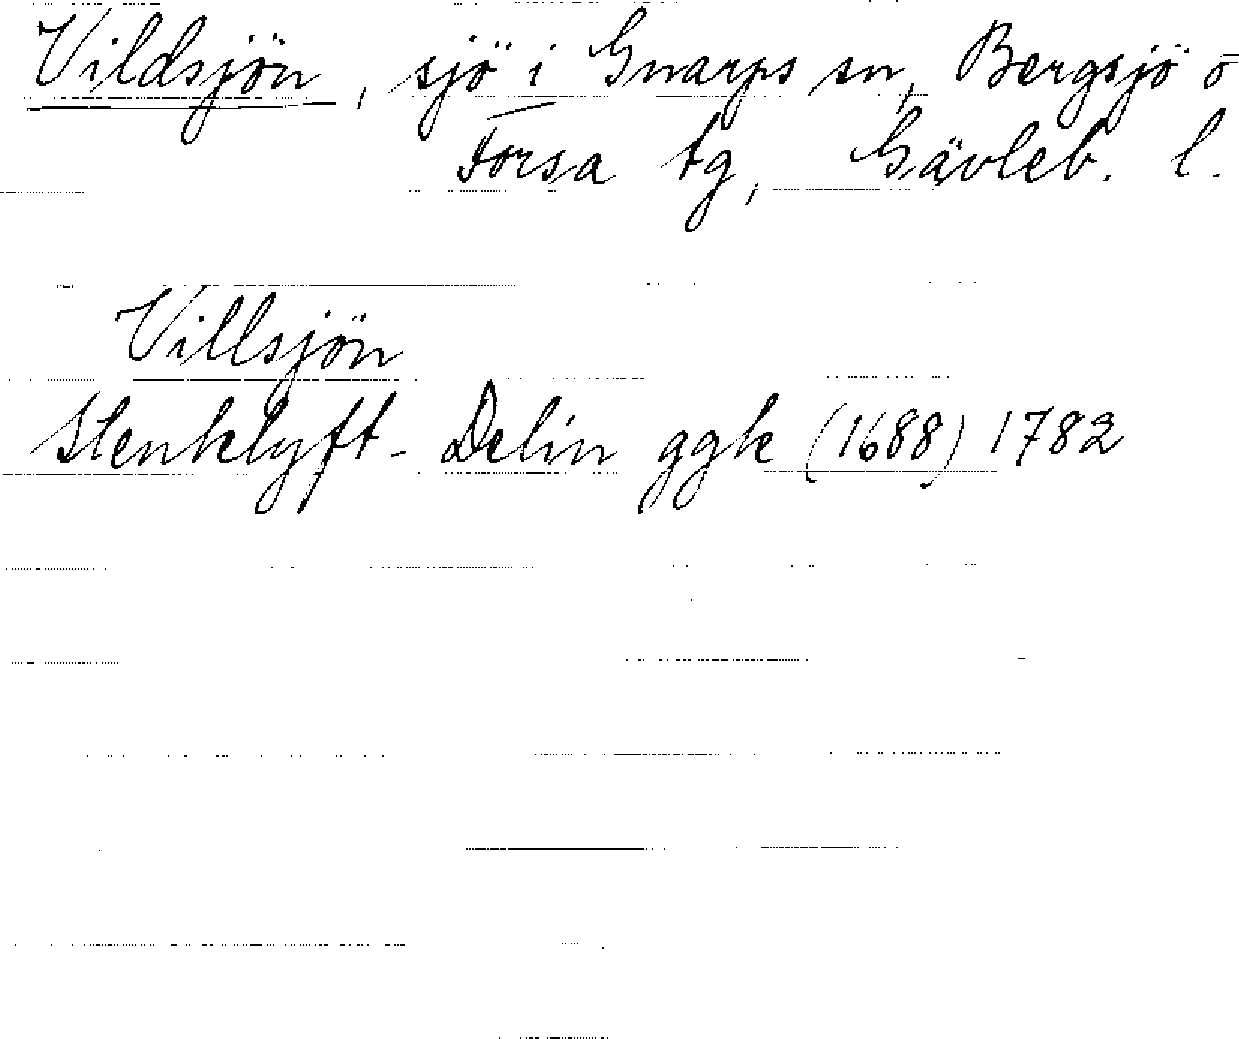 Vildsjön, sjö i Gnarps sn, Bergsjö o
Forsa tg, Gävleb. l.
Villsjön
Stenklyft - Delin ggk (1688) 1782